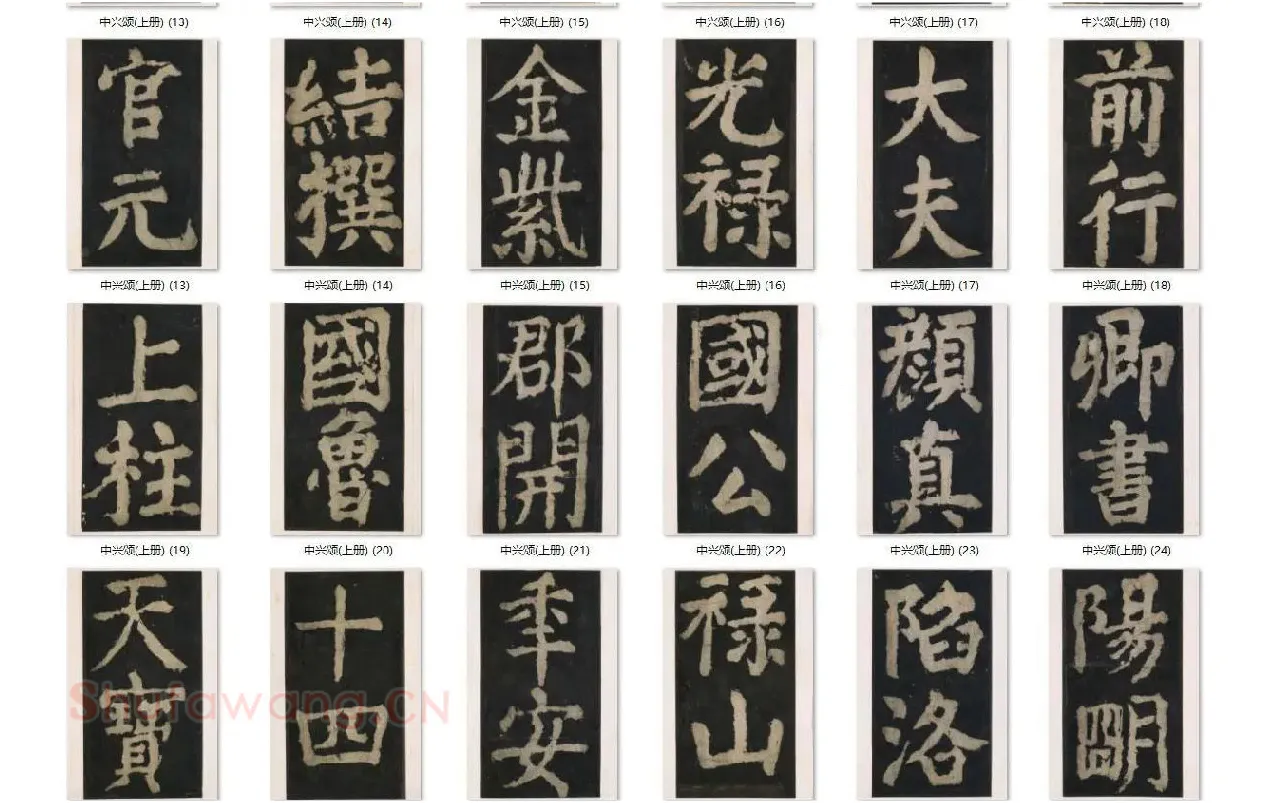 中兴颂(上册) (13) 中兴颂(上册) (14) 中兴颂(上册) (15) 中兴颂(上册) (16) 中兴颂(上册) (17) 中兴颂(上册) (18)
官元 結撰 金紫 光禄 大夫 前行
中兴颂(上册) (13) 中兴颂(上册) (14) 中兴颂(上册) (15) 中兴颂(上册) (16) 中兴颂(上册) (17) 中兴颂(上册) (18)
上柱 國魯 郡開 國公 顔真 卿書
中兴颂(上册) (19) 中兴颂(上册) (20) 中兴颂(上册) (21) 中兴颂(上册) (22) 中兴颂(上册) (23) 中兴颂(上册) (24)
天寶 十四 年安 禄山 陷洛 陽明
Shufawang.CN